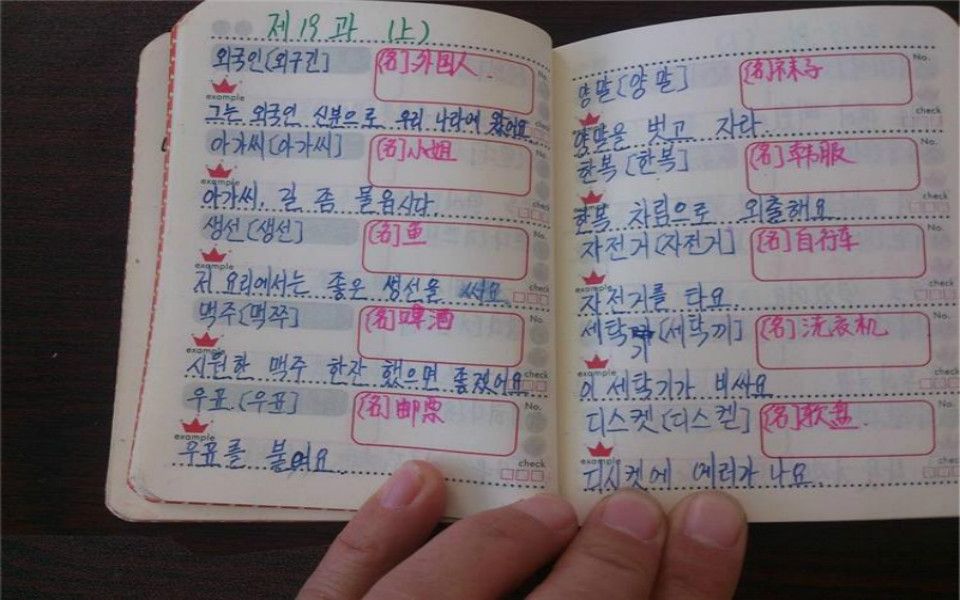 제 19 과 (上)
외국인 [외구긴] [名] 外国人
example
그는 외국인 신분으로 우리 나라에 왔어요
아가씨 [아가씨] [名] 小姐
example check
아가씨, 길 좀 물읍시다.
생선 [생선] [名] 鱼 No.
example check
저 요리에서는 좋은 생선을 써요
맥주 [맥쭈] [名] 啤酒 No.
example check
시원한 맥주 한잔 했으면 좋겠어요
우표 [우표] [名] 邮票 No.
example check
우표를 붙여요
양말 [양말] [名] 袜子 No.
example check
양말을 벗고 자라.
한복 [한복] [名] 韩服 No.
example check
한복 차림으로 외출해요
자전거 [자전거] [名] 自行车 No.
example check
자전거를 타요
세탁기 [세탁끼] [名] 洗衣机 No.
example check
이 세탁기가 비싸요
디스켓 [디스켇] [名] 软盘 No.
example check
디시켓에 에러가 나요